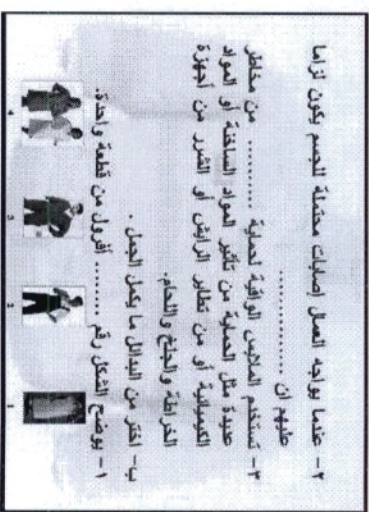 ٢ – عندما يواجه العمال إصابات محتملة للجسم يكون لزاما
عليهم ان ................
٣ – تستخدم الملابس الواقية لحماية ............ من مخاطر
عديدة مثل الحماية من تأثير المواد الساخنة أو المواد
الكيميائية أو من تطاير الرايش أو الشرر من أجهزة
الخراطة والجلخ واللحام.
ب – اختر من البدائل ما يكمل الجمل .
١ – يوضح الشكل رقم ........ أفرول من قطعة واحدة.
4 3 2 1